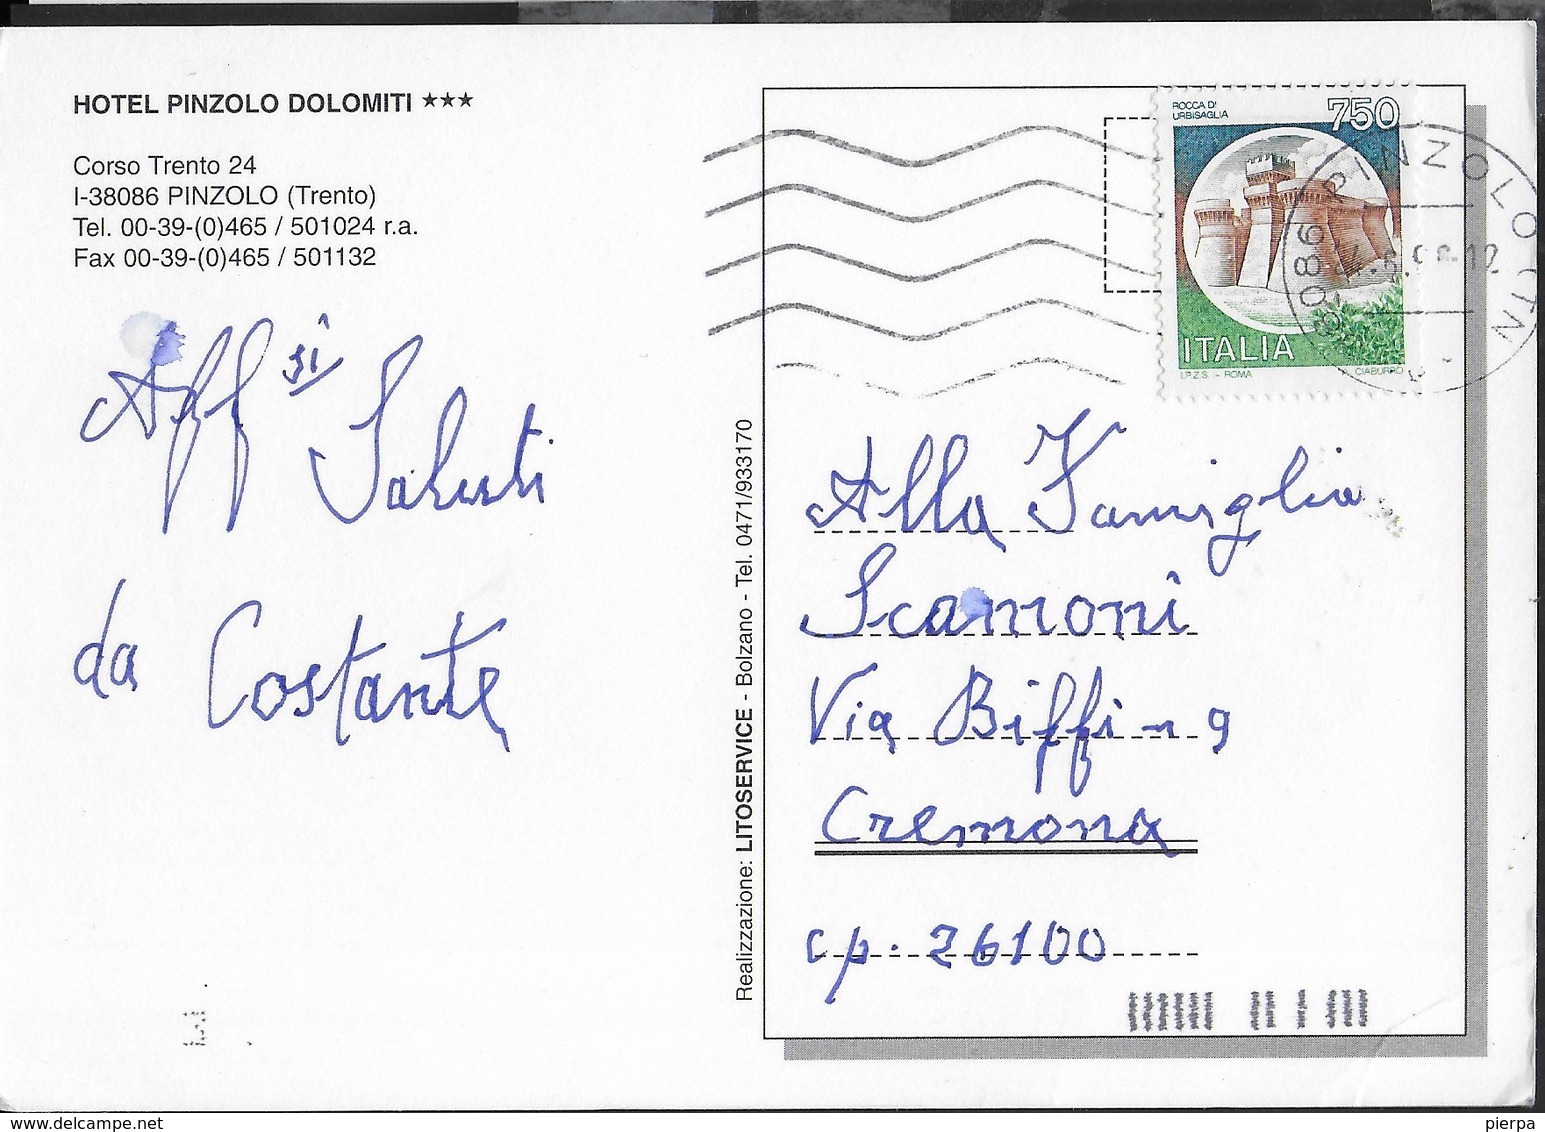 HOTEL PINZOLO DOLOMITI ★★★
Corso Trento 24
I-38086 PINZOLO (Trento)
Tel. 00-39-(0)465 / 501024 r.a.
Fax 00-39-(0)465 / 501132
Aff si Saluti
da Costante
Realizzazione: LITOSERVICE - Bolzano - Tel. 0471/933170
ROCCA DI
URBISAGLIA
750
ITALIA
I.P.Z.S. - ROMA
CIABURRO
38086 PINZOLO (TN)
Alla Famiglia
Scamoni
Via Biffi n 9
Cremona
cp. 26100
delcampe.net
pierpa